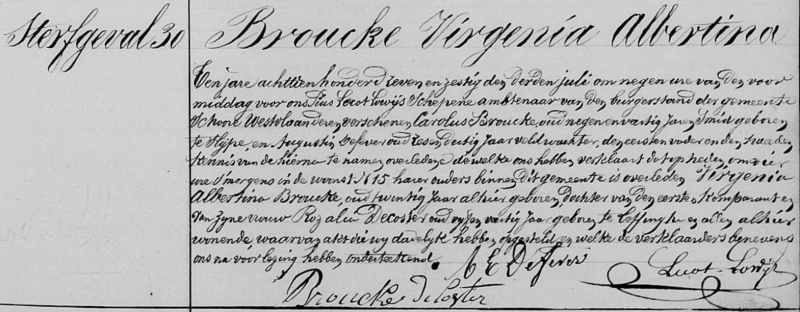 Sterfgeval 30
Broucke Virgenia Albertina
Ten jare achttien honderd zeven en zestig den derden juli om negen ure van den voor
middag voor ons Pius Locot Lowijs Schepene amktenaar van den burgerstand der gemeente
Schoore Westvlaanderen, verschenen Carolus Broucke, oud negen en vartig Jaar Smid geboren
te Slijpe, en Augustin Defever oud zes en dertig Jaar veld wachter, den eersten vader en den tweeden
kennis van de hierna te namen overledene de welke ons hebben verklaart dat op heden, om vier
ure s'morgens in de woonst N. 15 haier ouders binnen dit gemeente is overleden Virgenia
Albertina Broucke, oud twintig Jaar alhier geboren, dochter van den eersten Komparant en
van zyne vrouw Rozalia Decoster oud vyf en vartig Jaar geboren te Leffinghe en allen alhier
wonende, waar van akt die wy dadelyk hebben opgesteld, en welke de verklaarders benevens
ons na voorlezing hebben onderteekend.
A E Defever
Broucke De Coster
Lucot - Lowijs